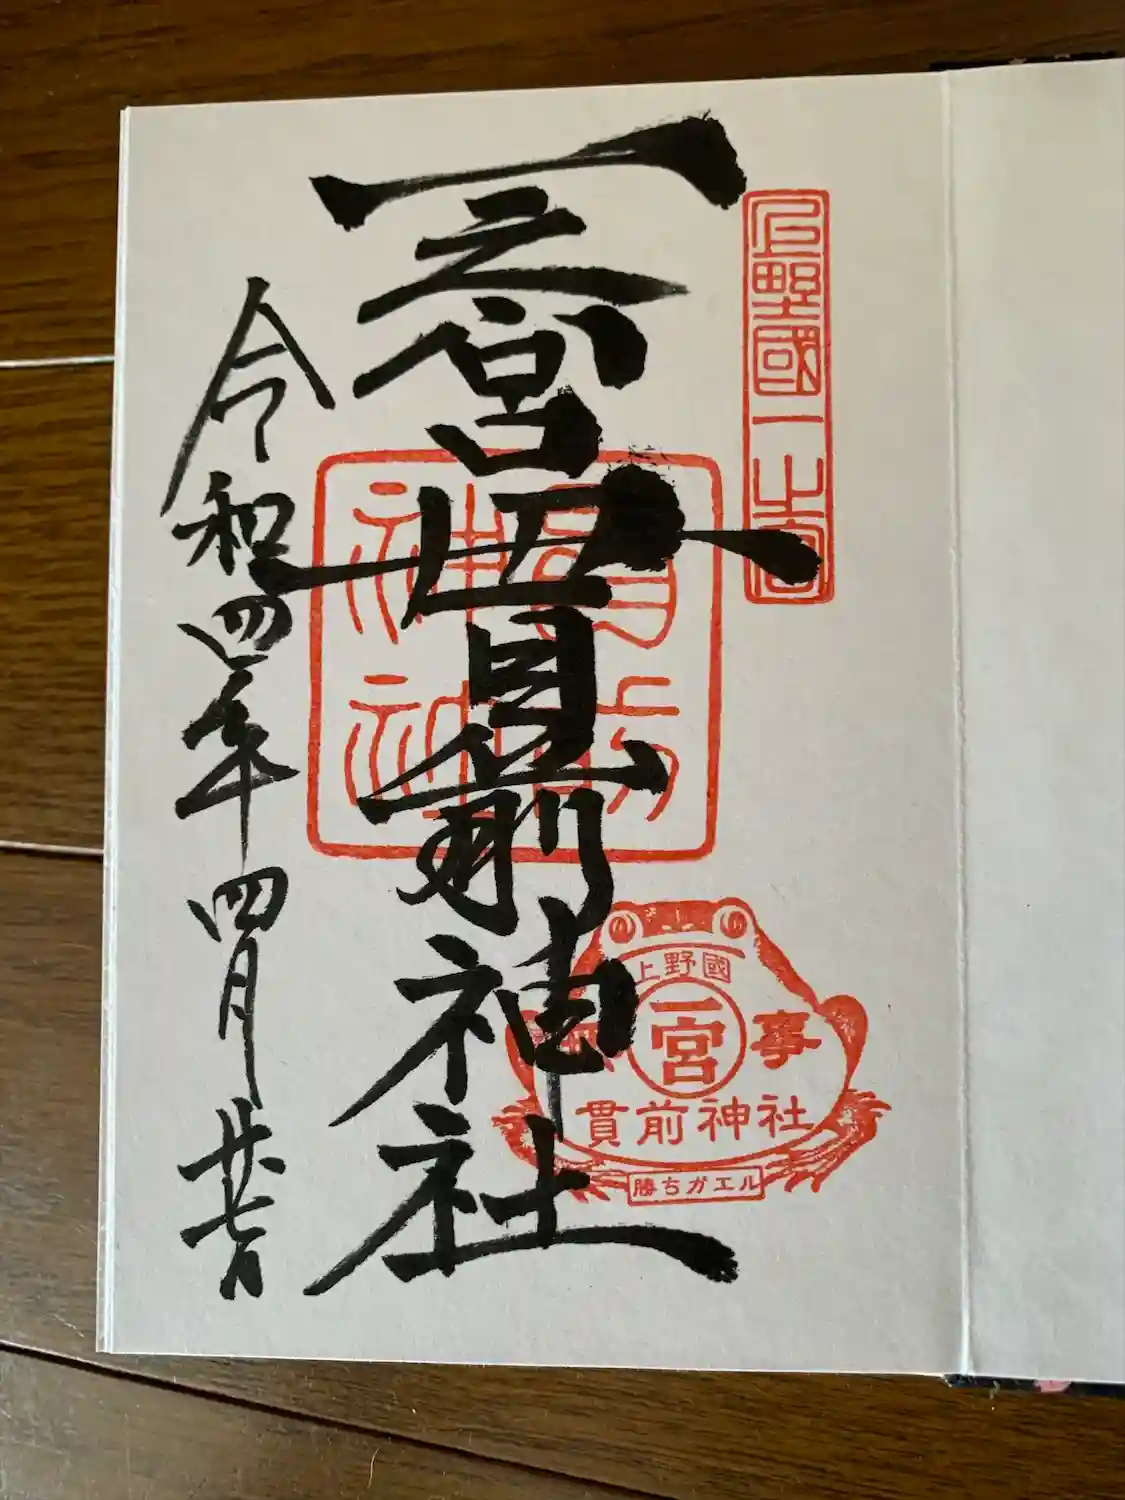 上野國一之宮
一之宮貫前神社
令和四年四月廿七日
貫前神社
上野國
一宮
貫前神社
勝ちガエル